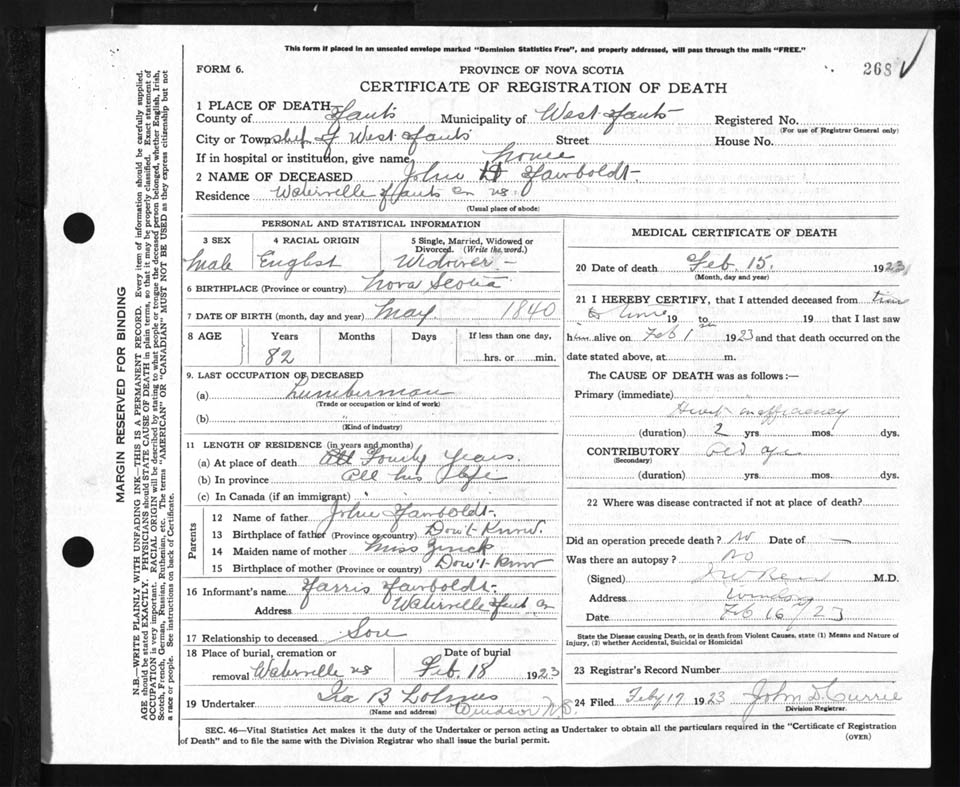 This form if placed in an unsealed envelope marked "Dominion Statistics Free", and properly addressed, will pass through the mails "FREE."
FORM 6.
PROVINCE OF NOVA SCOTIA
268 √
CERTIFICATE OF REGISTRATION OF DEATH
1 PLACE OF DEATH
County of Hants Municipality of West Hants Registered No.
(For use of Registrar General only)
City or Township of West Hants Street House No.
If in hospital or institution, give name home
2 NAME OF DECEASED John H
Residence Waterville Hants Co NS.
(Usual place of abode)
PERSONAL AND STATISTICAL INFORMATION
3 SEX 4 RACIAL ORIGIN 5 Single, Married, Widowed or Divorced. (Write the word.)
Male Widower -
6 BIRTHPLACE (Province or country) Nova Scotia
7 DATE OF BIRTH (month, day and year) May 1840
8 AGE Years Months Days If less than one day,
82 hrs. or min.
9. LAST OCCUPATION OF DECEASED
(a) Lumberman
(Trade or occupation or kind of work)
(b) "
(Kind of industry)
11 LENGTH OF RESIDENCE (in years and months)
(a) At place of death Fourty Years.
(b) In province All his life
(c) In Canada (if an immigrant)
Parents
12 Name of father John
13 Birthplace of father (Province or country) Don't Know.
14 Maiden name of mother Miss Zinck
15 Birthplace of mother (Province or country) Don't Know
16 Informant's name Harris
Address Waterville Hants Co
17 Relationship to deceased Son
18 Place of burial, cremation or removal Waterville NS
Date of burial Feb. 18 1923
19 Undertaker Ira B Lohnes
(Name and address) Windsor N.S.
MEDICAL CERTIFICATE OF DEATH
20 Date of death Feb. 15. 1923
(Month, day and year)
21 I HEREBY CERTIFY, that I attended deceased from time
to time 19 to 19 that I last saw
him alive on Feb 1st 1923 and that death occurred on the
date stated above, at m.
The CAUSE OF DEATH was as follows:—
Primary (immediate)
Heart inefficiency
(duration) 2 yrs. mos. dys.
CONTRIBUTORY old age
(Secondary)
(duration) yrs. mos. dys.
22 Where was disease contracted if not at place of death?
Did an operation precede death? No Date of —
Was there an autopsy? No
(Signed) M.D.
Address Windsor
Date Feb 16 / 23
State the Disease causing Death, or in death from Violent Causes, state (1) Means and Nature of
Injury, (2) whether Accidental, Suicidal or Homicidal
23 Registrar's Record Number
24 Filed Feby 17 1923 John D. Currie
Division Registrar.
SEC. 46—Vital Statistics Act makes it the duty of the Undertaker or person acting as Undertaker to obtain all the particulars required in the "Certificate of Registration
of Death" and to file the same with the Division Registrar who shall issue the burial permit.
(OVER)
MARGIN RESERVED FOR BINDING
N.B.—WRITE PLAINLY WITH UNFADING INK—THIS IS A PERMANENT RECORD. Every item of information should be carefully supplied.
AGE should be stated EXACTLY. PHYSICIANS should STATE CAUSE OF DEATH in plain terms, so that it may be properly classified. Exact statement of
OCCUPATION is very important. RACIAL ORIGIN will be described by stating to what people or tongue the deceased person belonged, whether English, Irish,
Scotch, French, German, Russian, Ruthenian, etc. The terms "AMERICAN" OR "CANADIAN" MUST NOT BE USED as they express citizenship but not
a race or people. See instructions on back of Certificate.